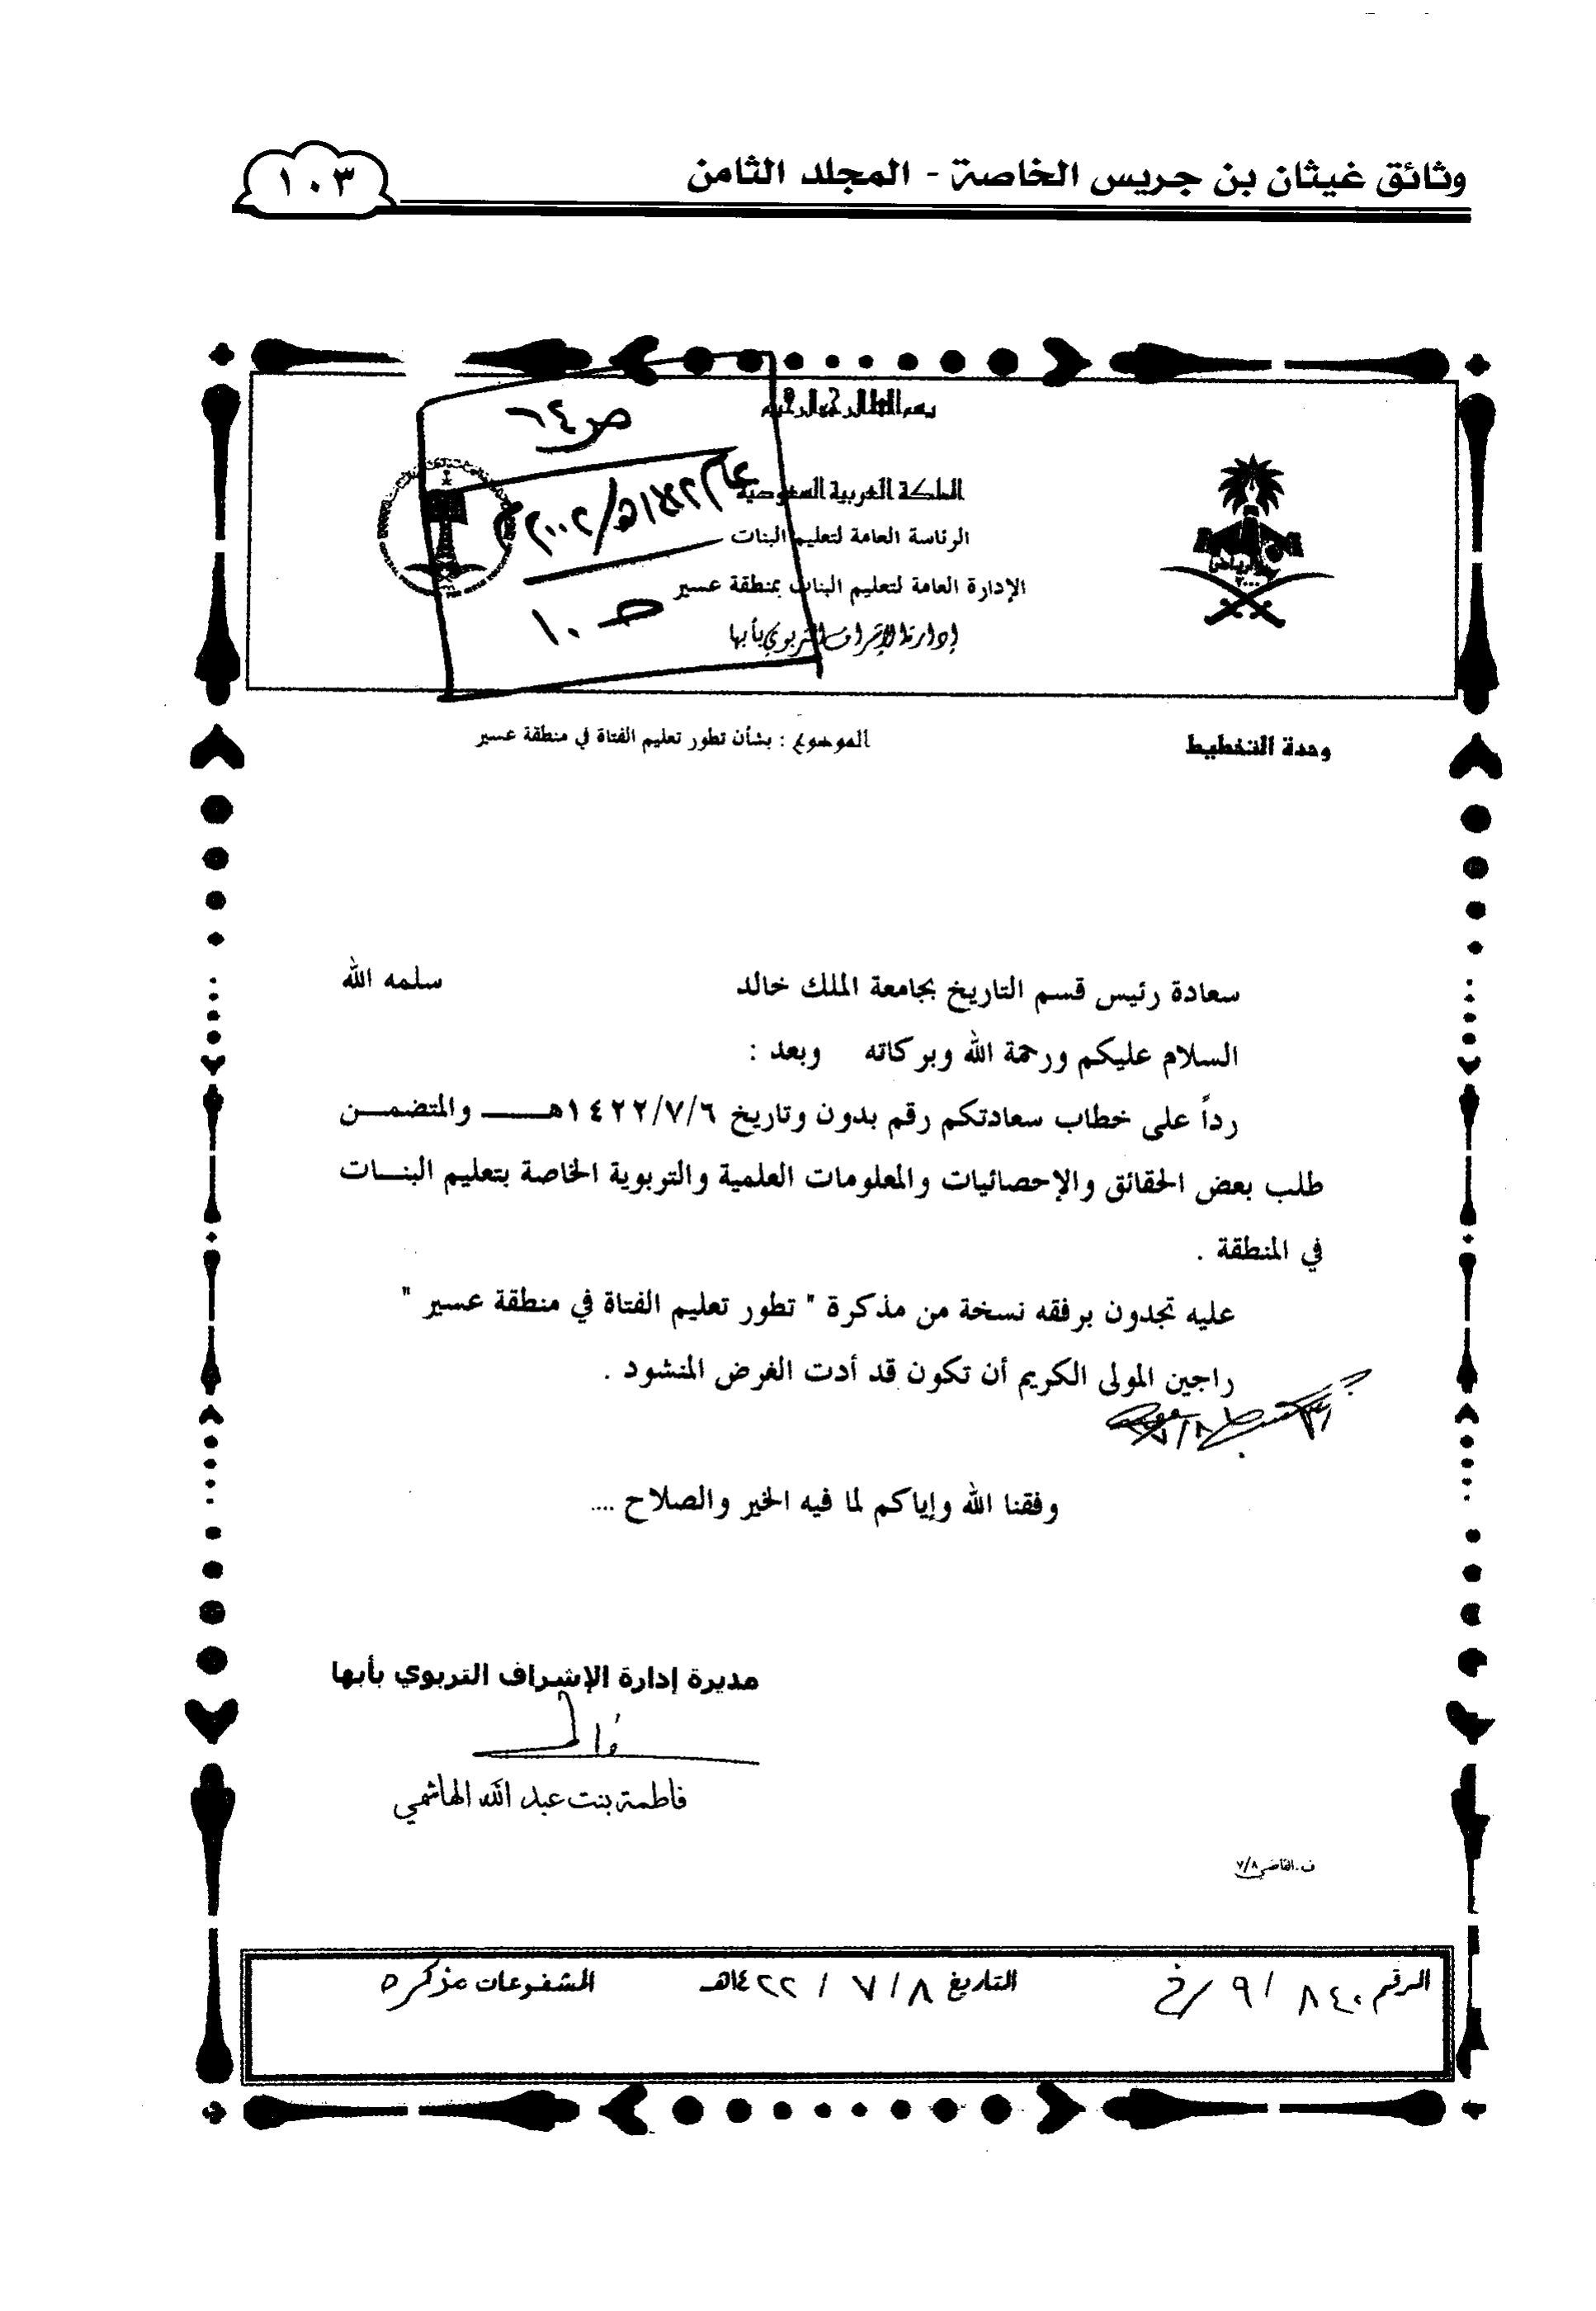 وثائق غيثان بن جريس الخاصة - المجلد الثامن
١٠٣
بسم الله الرحمن الرحيم
ص ٦٤
المملكة العربية السعودية
عام ١٤٢٢هـ/٢٠٠٢م
الرئاسة العامة لتعليم البنات
الإدارة العامة لتعليم البنات بمنطقة عسير
إدارة الإشراف التربوي بأبها
وحدة التخطيط
الموضوع : بشأن تطور تعليم الفتاة في منطقة عسير
سعادة رئيس قسم التاريخ بجامعة الملك خالد سلمه الله
السلام عليكم ورحمة الله وبركاته وبعد :
رداً على خطاب سعادتكم رقم بدون وتاريخ ١٤٢٢/٧/٦هـــ والمتضمــن
طلب بعض الحقائق والإحصائيات والمعلومات العلمية والتربوية الخاصة بتعليم البنـــات
في المنطقة .
عليه تجدون برفقه نسخة من مذكرة " تطور تعليم الفتاة في منطقة عسير "
راجين المولى الكريم أن تكون قد أدت الغرض المنشود .
وفقنا الله وإياكم لما فيه الخير والصلاح ....
مديرة إدارة الإشراف التربوي بأبها
فاطمة بنت عبد الله الهاشمي
ف.القاضي ٧/٨
الرقم ٨٤٠ / ٩ / خ التاريخ ٨ / ٧ / ١٤٢٢هـ المشفوعات مذكره